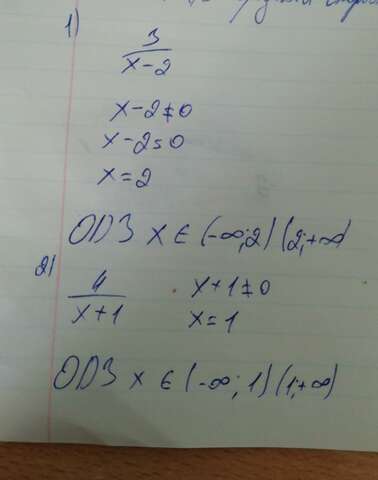 1)
3
x-2
x-2≠0
x-2=0
x=2
ОДЗ x∈(-∞;2) (2;+∞)
2)
4
x+1
x+1≠0
x=1
ОДЗ x∈(-∞;1) (1;+∞)